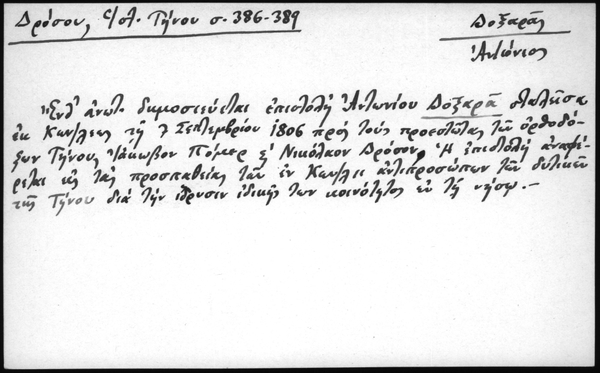 Δρόσου, Ἱστ. Τήνου σ. 386-389
Δοξαρᾶς
Ἀντώνιος
Ἐνθ' ἀνωτ. δημοσιεύεται ἐπιστολή Ἀντωνίου Δοξαρᾶ σταλεῖσα
ἐκ Κων/λεως τῇ 7 Σεπτεμβρίου 1806 πρός τούς προεστῶτας τῶν ὀρθοδό-
ξων Τήνου, Ἰάκωβον Πάμερ ἤ Νικόλαον Δρόσον. Ἡ ἐπιστολή ἀναφέ-
ρεται εἰς τάς προσπαθείας τῶν ἐν Κων/λει ἀντιπροσώπων τῶν δυτικῶν
τῆς Τήνου διά τήν ἵδρυσιν ἰδικῆς των κοινότητος ἐν τῇ νήσῳ.-